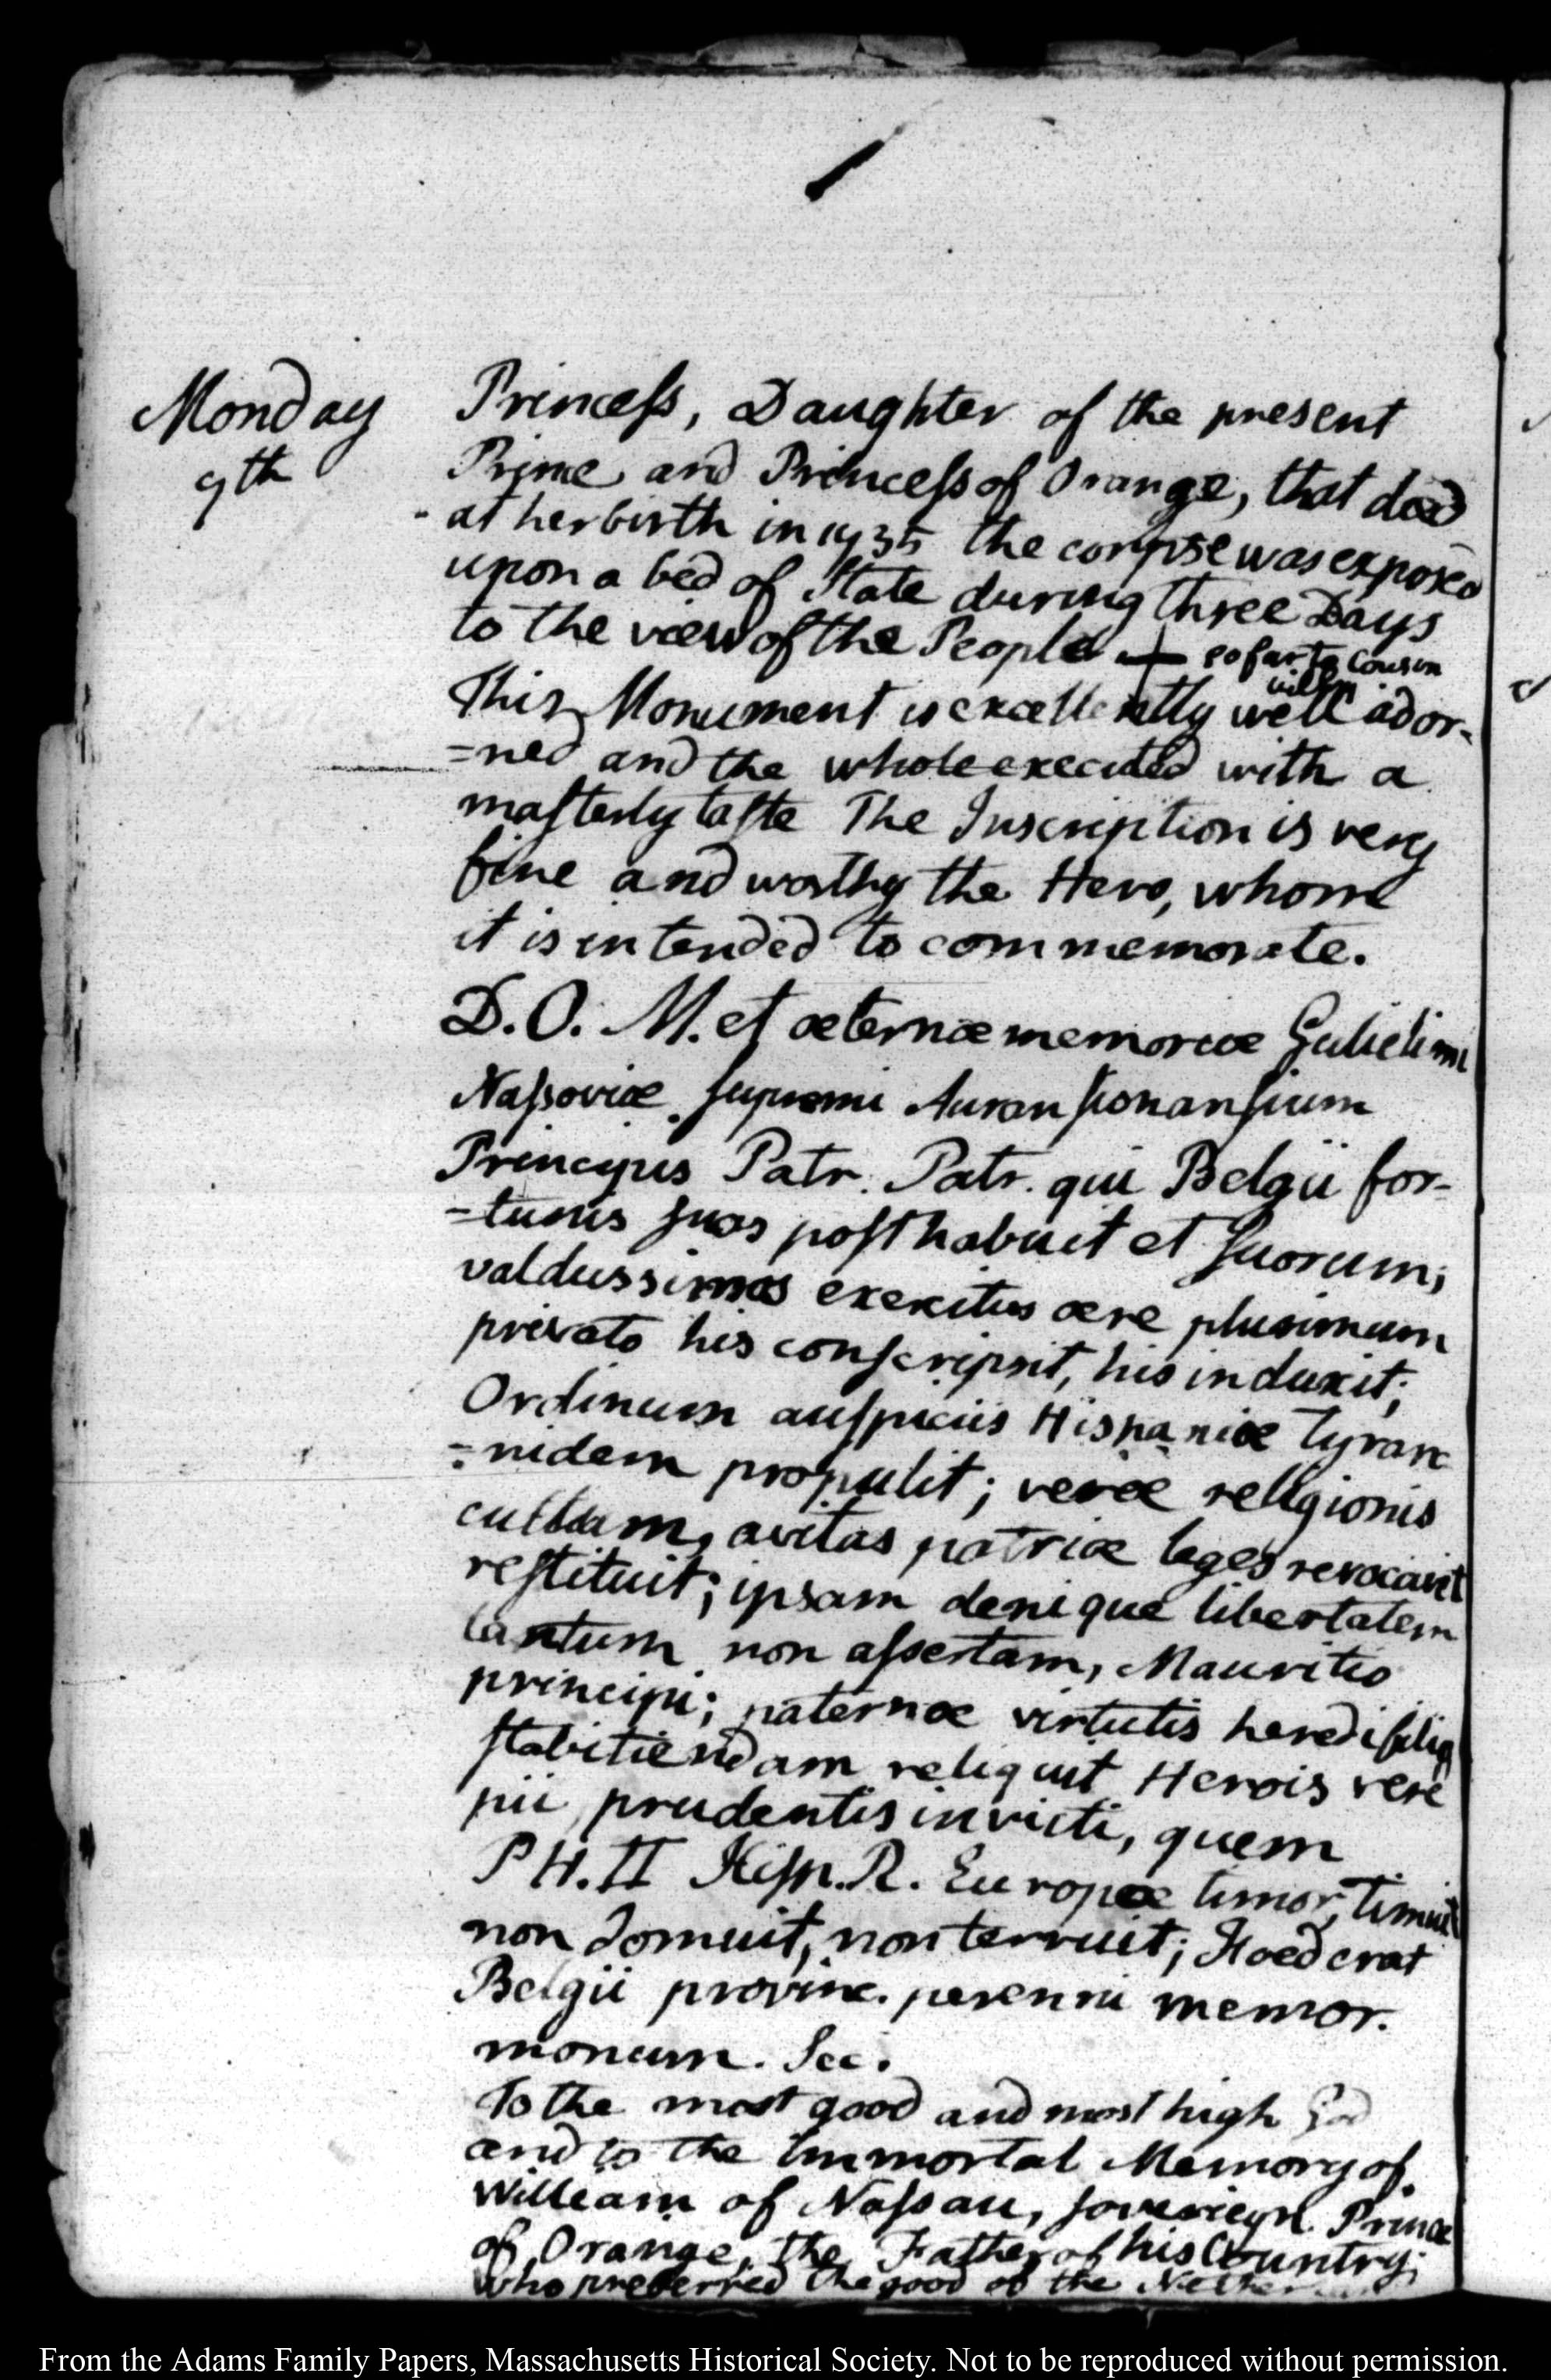 Monday
9th
Princess, Daughter of the present
Prince and Princess of Orange, that died
at her birth in 1735 the corpse was exposed
upon a bed of State during three Days
to the view of the People + so far to Cousin
Billy
This Monument is excellently well ador-
=ned and the whole executed with a
masterly taste The Inscription is very
fine and worthy the Hero, whom
it is intended to commemorate.
D. O. M. et æternæ memoriæ Gulielimi
Nassoviæ supremi Auransionansium
Principis Patr. Patr. qui Belgii for-
=tunis suas posthabuit et suorum;
valdissimos exercitus ære plurimum
privato bis conscripsit, bis induxit;
Ordinum auspiciis Hispaniæ tyran
=nidem propulit; veræ religionis
cultum, avitas patriæ leges revocavit
restituit; ipsam denique libertatem
tantum non assertam, Mauritio
principi; paternæ virtutis heredi filio
stabiliendam reliquit Herois vere
pii, prudentis invicti, quem
P H. II Hisp. R. Europæ timor, timuit
non domuit, non terruit; Foed erat
Belgii provinc. perenni memor.
monum. Fec.
To the most good and most high God
and to the Immortal Memory of
William of Nassau, sovereign Prince
of Orange, the Father of his Country;
who preferred the good of the
From the Adams Family Papers, Massachusetts Historical Society. Not to be reproduced without permission.